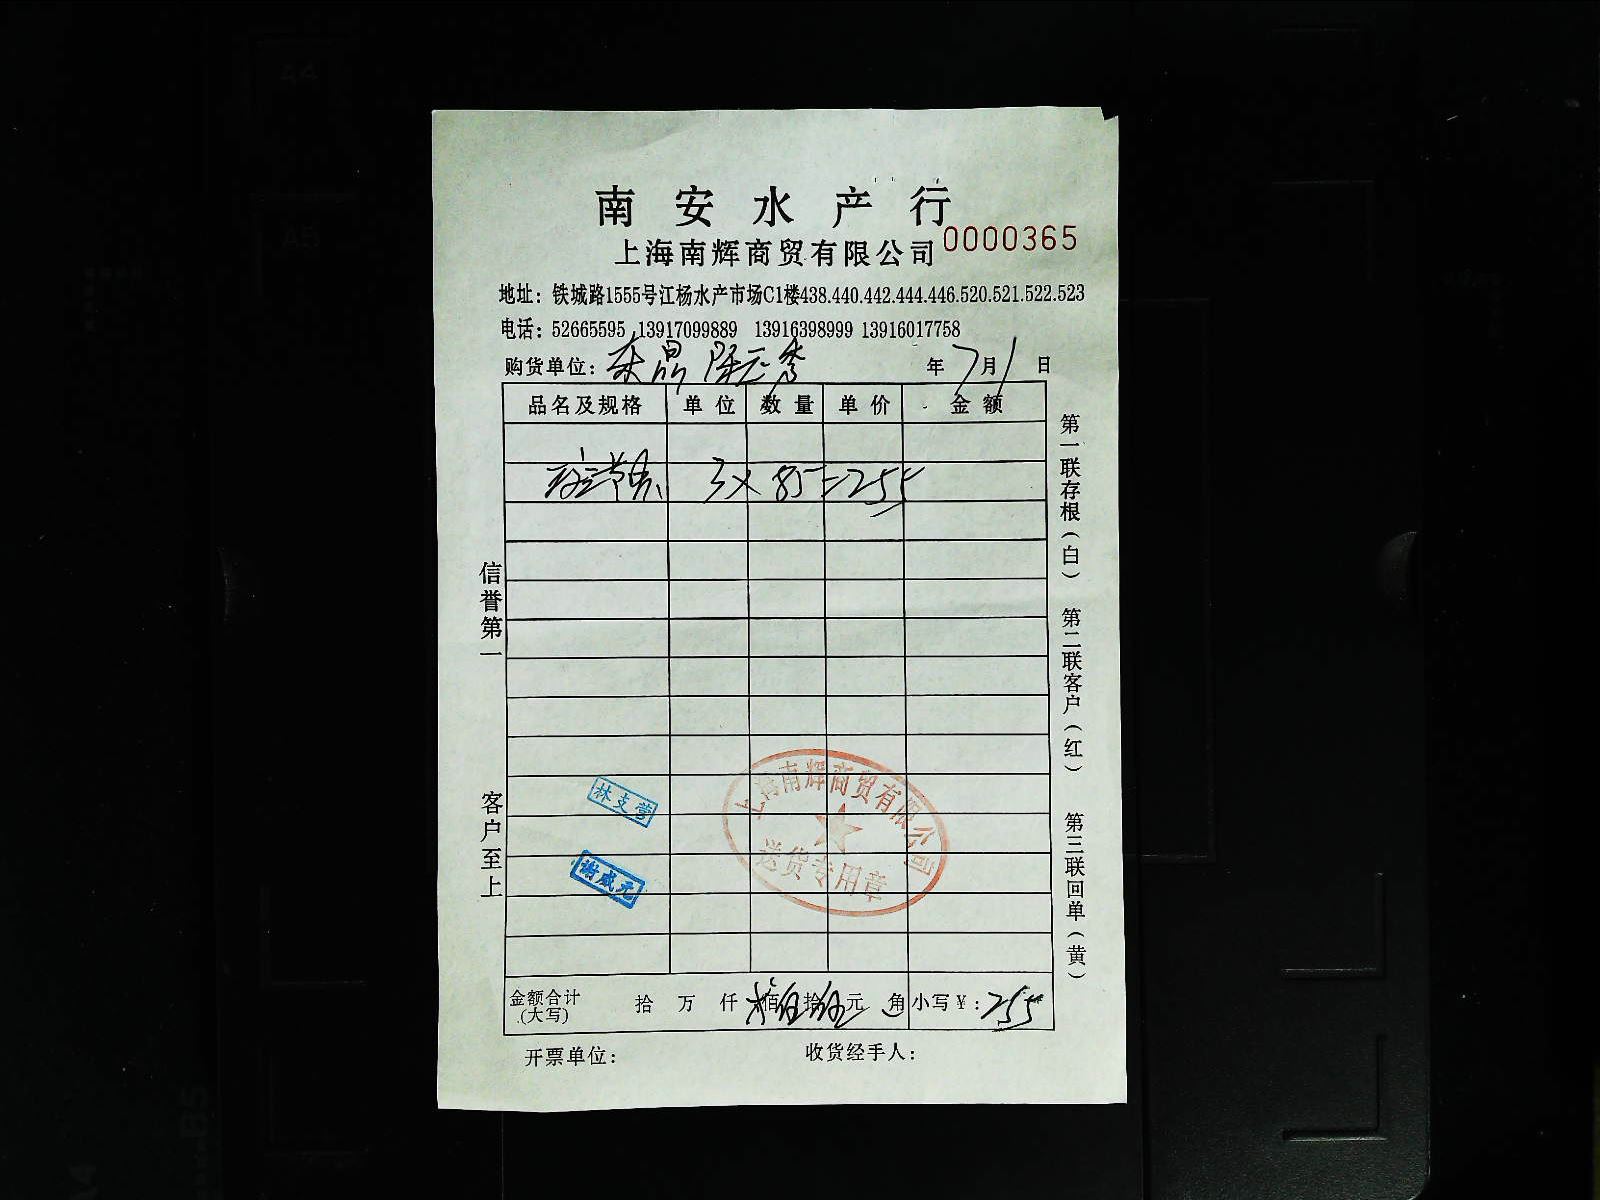 南安水产行
上海南辉商贸有限公司 0000365
地址：铁城路1555号江杨水产市场C1楼438.440.442.444.446.520.521.522.523
电话：52665595 13917099889 13916398999 13916017758
购货单位： 年7月1日
品名及规格 单位 数量 单价 金额
3×85=255
信誉第一
客户至上
第一联存根（白） 第二联客户（红） 第三联回单（黄）
上海南辉商贸有限公司
送货专用章
林支营
谢咸元
金额合计（大写） 拾 万 仟 佰 拾 元 角 小写￥：255
开票单位： 收货经手人：
A4
A5
B5